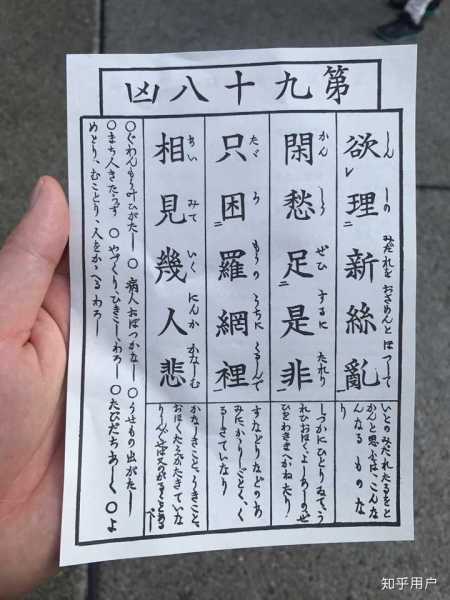 第九十八凶
欲理新絲亂
しんしの みだれを おさめんとほつして
いとのみだれたるをと
かんと思ふは、こんな
んなるものな
り
閑愁足是非
かんしう ぜひ するに たれり
しづかにひとりゐて、う
れひおほく、よしあしのぜ
ひをわきまへかねたり
只困羅網裡
たゞ らもうの うちに くるしんで
すなどりなどのあ
みに、かゝりしごとく、く
るしきていなり
相見幾人悲
あい みて いくにんか かなしむ
かなしきこと、うきこと、
おほくたえがたきていな
べし
〇ぐわんもう叶ひがたし 〇病人おぼつかなし 〇うせもの出がたし
〇まち人きたらず 〇やづくり、ひきこし、わろし 〇たびだちあしく 〇よ
めとり、むことり、人をかゝへるわろし
知乎用户